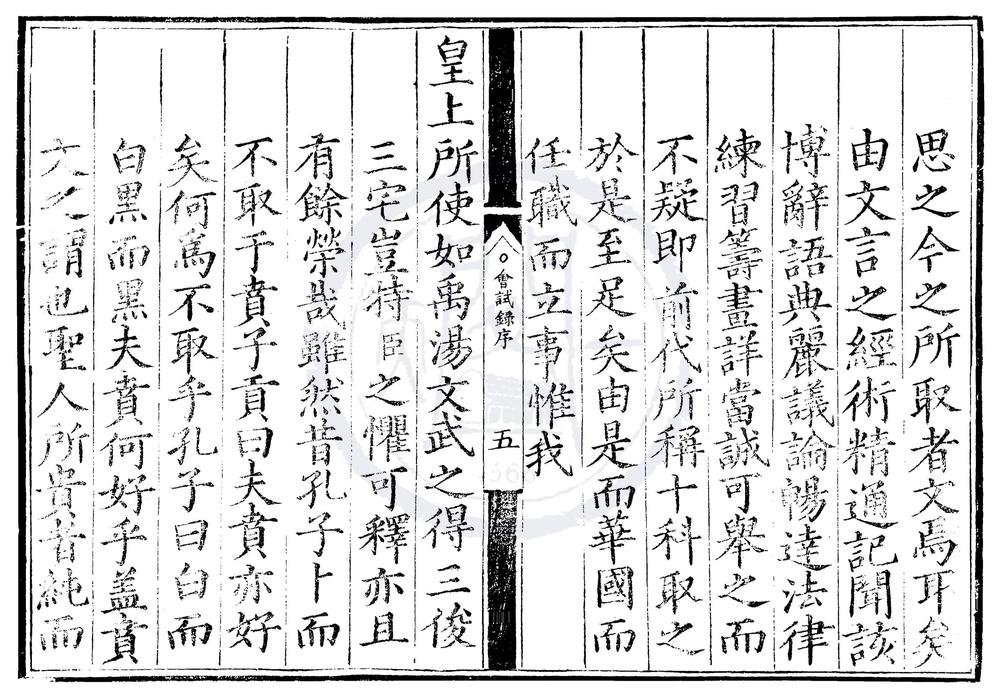 思之今之所取者文焉耳矣
由文言之經術精通記聞該
博辭語典麗議論暢達法律
練習籌畫詳當誠可舉之而
不疑即前代所稱十科取之
於是至足矣由是而華國而
任職而立事惟我
會試錄序
五
皇上所使如禹湯文武之得三俊
三宅豈特臣之懼可釋亦且
有餘榮哉雖然昔孔子卜而
不取于賁子貢曰夫賁亦好
矣何爲不取乎孔子曰白而
白黑而黑夫賁何好乎盖賁
文之謂也聖人所貴者純而